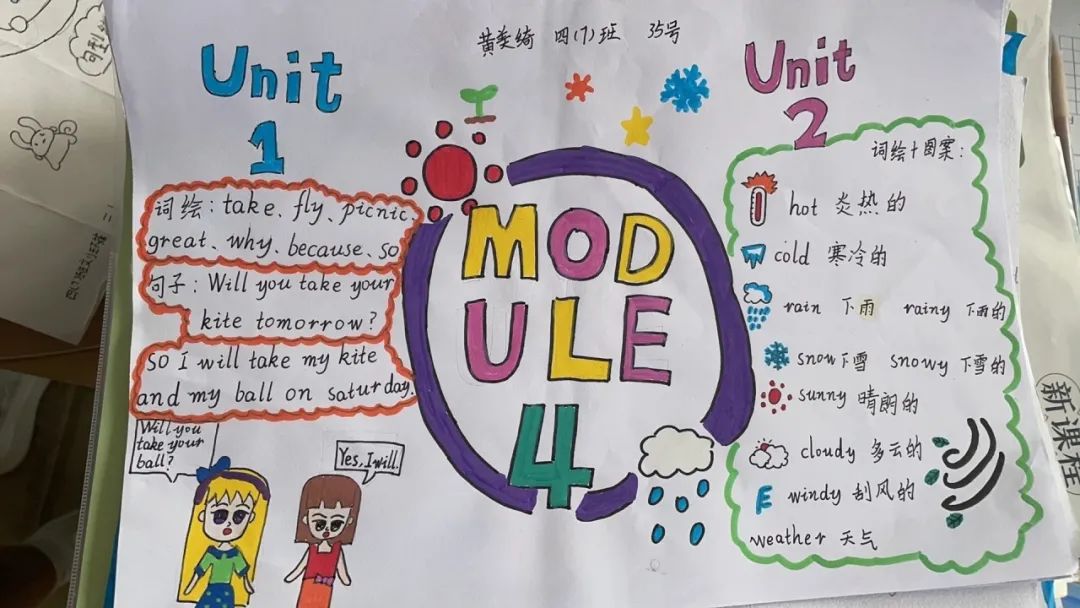 黄奕绮 四(7)班 35号
Unit
1
词绘：take、fly、picnic、
great、why、because、so
句子：Will you take your
kite tomorrow?
so I will take my kite
and my ball on saturday.
Will you
take your
ball?
Yes, I will.
MOD
ULE
4
Unit
2
词绘+图案：
hot 炎热的
cold 寒冷的
rain 下雨 rainy 下雨的
snow下雪 snowy 下雪的
sunny 晴朗的
cloudy 多云的
windy 刮风的
weather 天气
新课程